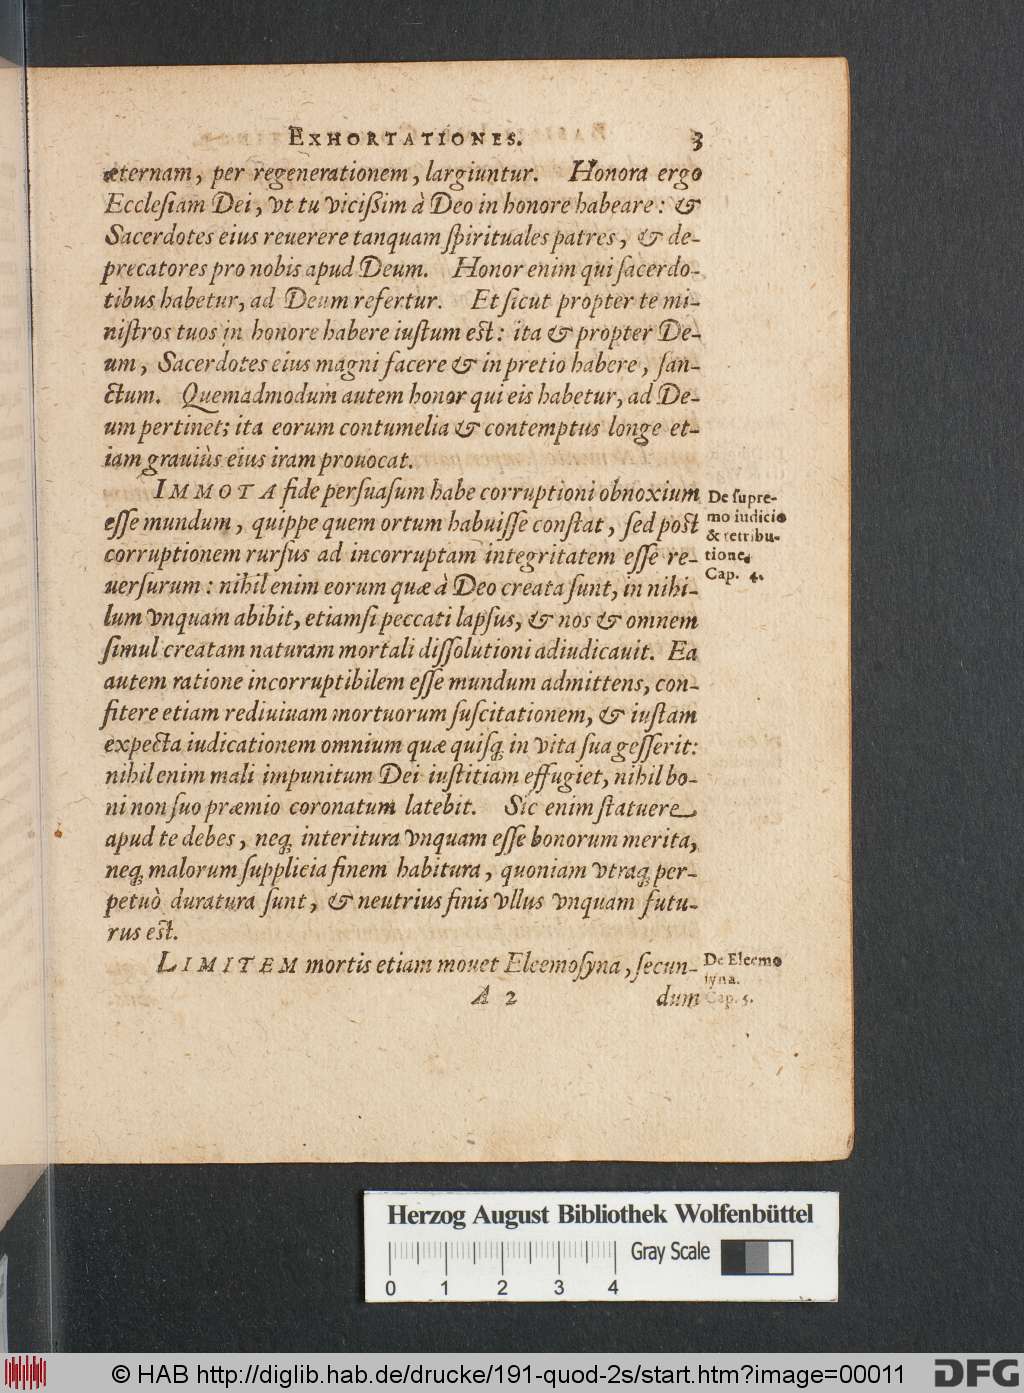 EXHORTATIONES. 3
æternam, per regenerationem, largiuntur. Honora ergo
Ecclesiam Dei, vt tu vicißim à Deo in honore habeare: &
Sacerdotes eius reuerere tanquam spirituales patres, & de-
precatores pro nobis apud Deum. Honor enim qui sacerdo-
tibus habetur, ad Deum refertur. Et sicut propter te mi-
nistros tuos in honore habere iustum est: ita & propter De-
um, Sacerdotes eius magni facere & in pretio habere, san-
ctum. Quemadmodum autem honor qui eis habetur, ad De-
um pertinet; ita eorum contumelia & contemptus longe et-
iam grauiùs eius iram prouocat.
IMMOTA fide persuasum habe corruptioni obnoxium
esse mundum, quippe quem ortum habuisse constat, sed post
corruptionem rursus ad incorruptam integritatem esse re-
uersurum: nihil enim eorum quæ à Deo creata sunt, in nihi-
lum vnquam abibit, etiamsi peccati lapsus, & nos & omnem
simul creatam naturam mortali dissolutioni adiudicauit. Ea
autem ratione incorruptibilem esse mundum admittens, con-
fitere etiam rediuiuam mortuorum suscitationem, & iustam
expecta iudicationem omnium quæ quisq; in vita sua gesserit:
nihil enim mali impunitum Dei iustitiam effugiet, nihil bo-
ni non suo præmio coronatum latebit. Sic enim statuere
apud te debes, neq; interitura vnquam esse bonorum merita,
neq; malorum supplicia finem habitura, quoniam vtraq; per-
petuò duratura sunt, & neutrius finis vllus vnquam futu-
rus est.
De supre-
mo iudicio
& retribu-
tione.
Cap. 4.
LIMITEM mortis etiam mouet Eleemosyna, secun-
De Eleemo
syna.
Cap. 5.
A 2 dum
Herzog August Bibliothek Wolfenbüttel
Gray Scale
0 1 2 3 4
© HAB http://diglib.hab.de/drucke/191-quod-2s/start.htm?image=00011
DFG